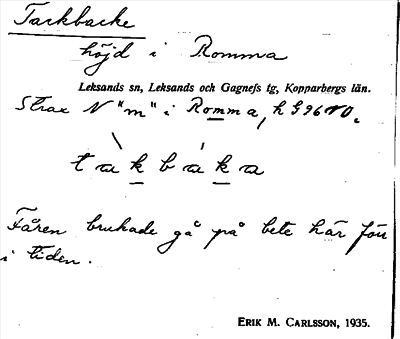 Tackbacke
höjd i Romma
Leksands sn, Leksands och Gagnefs tg, Kopparbergs län.
Strax N "m" i Romma, h §96 NO.
tàkbáka
Fåren brukade gå på bete här förr
i tiden.
ERIK M. CARLSSON, 1935.